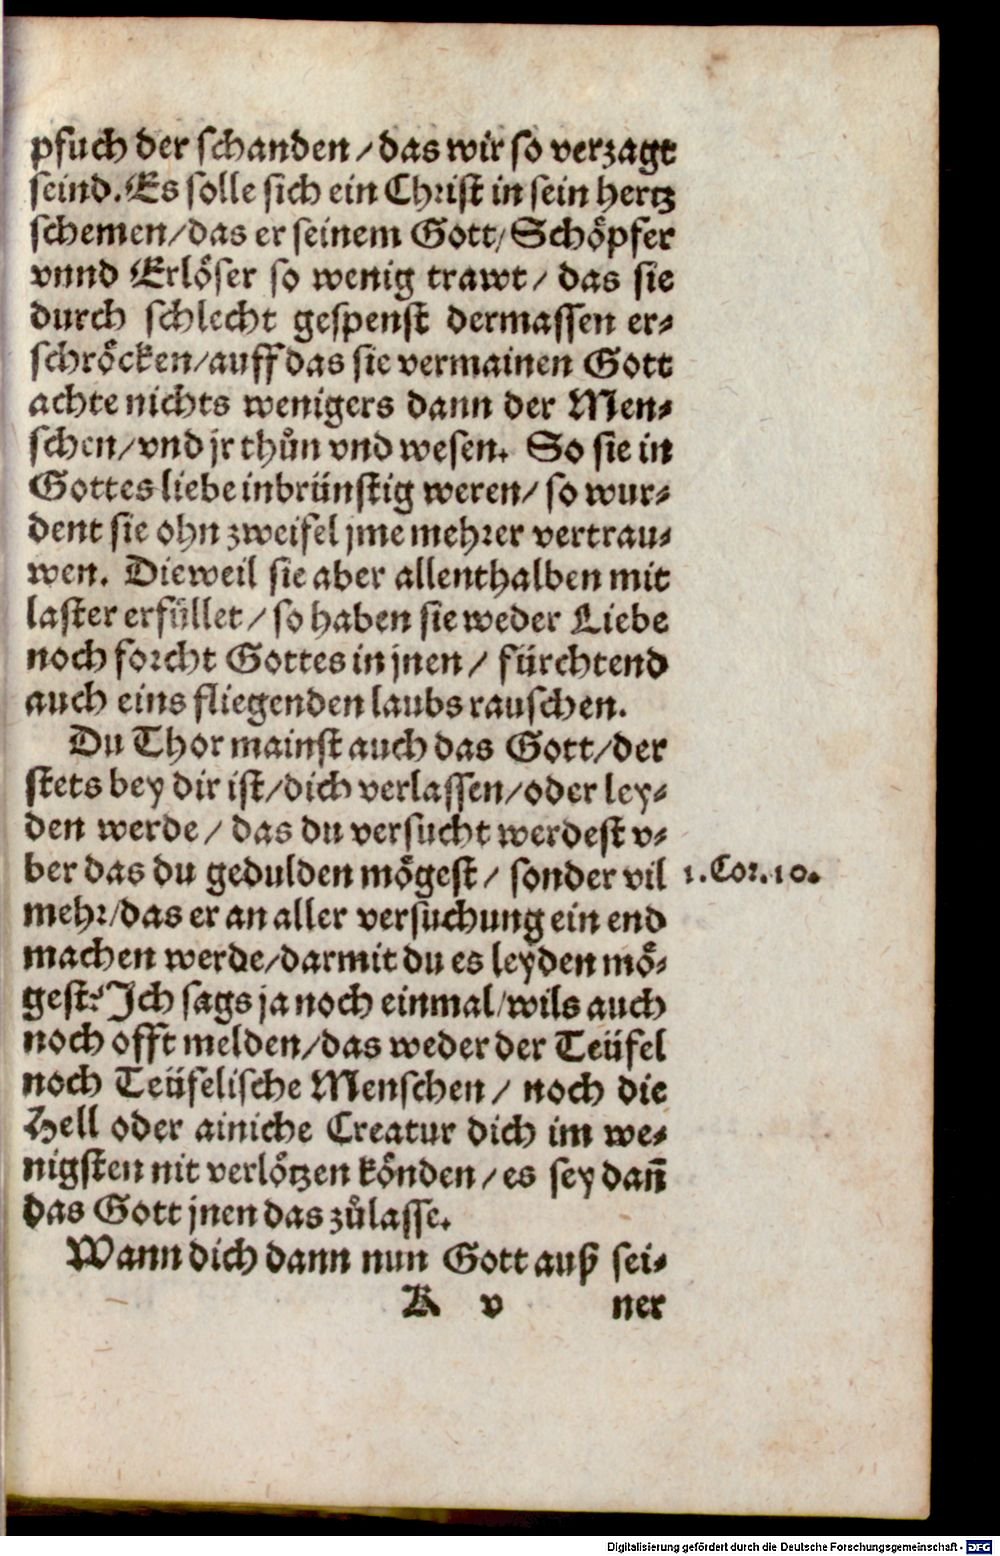 pfuch der schanden / das wir so verzagt
seind. Es solle sich ein Christ in sein hertz
schemen / das er seinem Gott / Schöpfer
vnnd Erlöser so wenig trawt / das sie
durch schlecht gespenst dermassen er⸗
schröcken / auff das sie vermainen Gott
achte nichts wenigers dann der Men⸗
schen / vnd jr thůn vnd wesen. So sie in
Gottes liebe inbrünstig weren / so wur⸗
dent sie ohn zweifel jme mehrer vertrau⸗
wen. Dieweil sie aber allenthalben mit
laster erfüllet / so haben sie weder Liebe
noch forcht Gottes in jnen / fürchtend
auch eins fliegenden laubs rauschen.
Du Thor mainst auch das Gott / der
stets bey dir ist / dich verlassen / oder ley⸗
den werde / das du versucht werdest v⸗
ber das du gedulden mögest / sonder vil
1. Cor. 10.
mehr / das er an aller versuchung ein end
machen werde / darmit du es leyden mö⸗
gest? Ich sags ja noch einmal / wils auch
noch offt melden / das weder der Teüfel
noch Teüfelische Menschen / noch die
Hell oder ainiche Creatur dich im we⸗
nigsten nit verlötzen könden / es sey dañ
das Gott jnen das zůlasse.
Wann dich dann nun Gott auß sei⸗
K v ner
Digitalisierung gefördert durch die Deutsche Forschungsgemeinschaft - DFG